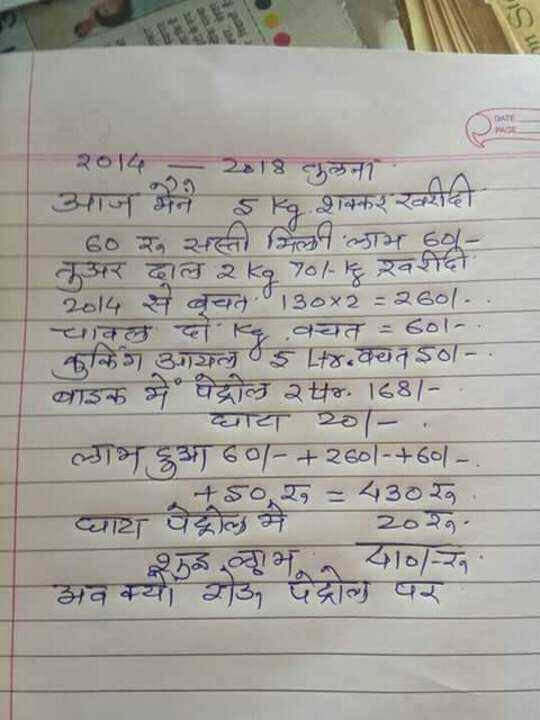 DATE
PAGE
२०14 — 2०18 तुलना
आज मैने 5 Kg. शक्कर खरीदी
60 रु सस्ती मिली लाभ 60/-
तुअर दाल २ Kg 70/- Kg खरीदी
2014 से बचत 130x2 = 260/-
चावल दो Kg बचत = 60/-
कुकिंग आयल 5 Ltr. बचत 50/-
बाइक मे पेट्रोल २ 168/-
घाटा 20/-
लाभ हुआ 60/- + 260/- + 60/-
+ 50 रु = 430 रु
घाटा पेट्रोल मे 20 रु
शुद्ध लाभ 410/- रु
अब क्यो रोऊ पेट्रोल पर